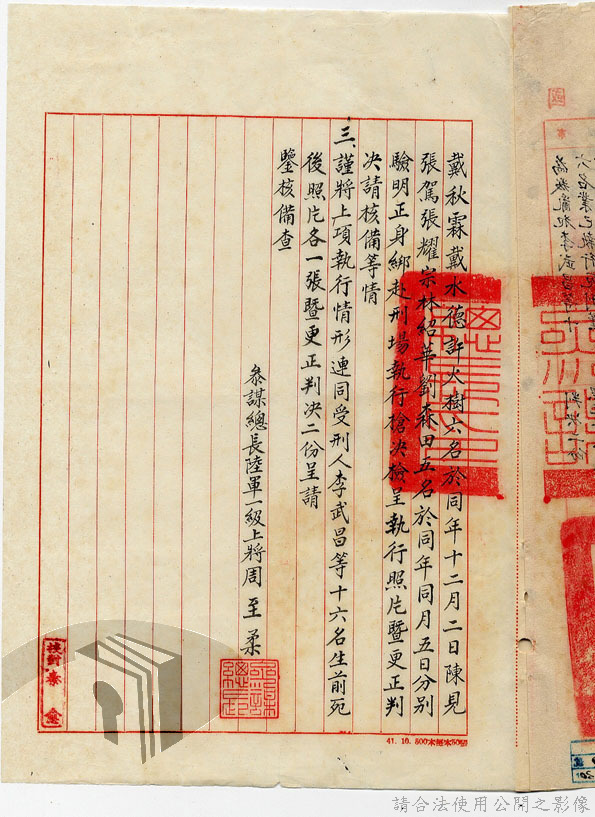 戴秋霖戴水德許火樹六名於同年十二月二日陳見
張駕張耀宗林紹華劉森田五名於同年同月五日分別
驗明正身綁赴刑場執行槍決檢呈執行照片暨更正判
決請核備等情
三、謹將上項執行情形連同受刑人李武昌等十六名生前死
後照片各一張暨更正判決二份呈請
鑒核備查
參謀總長陸軍一級上將周至柔
校對
請合法使用公開之影像